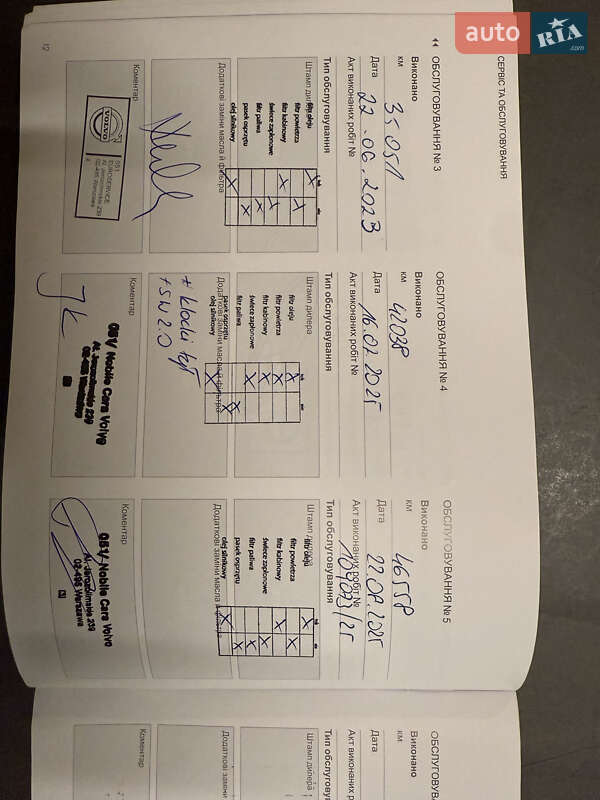 auto RIA .com
СЕРВІС ТА ОБСЛУГОВУВАННЯ
ОБСЛУГОВУВАННЯ № 3
Виконано
км 35 051
Дата 22.06.2023
Акт виконаних робіт №
Тип обслуговування
Штамп дилера
filtr oleju
filtr powietrza
filtr kabinowy
świece zapłonowe
filtr paliwa
pasek osprzętu
olej silnikowy
tak
nie
Додаткові заміни масла й фільтра
Коментар
VOLVO
551
EUROSERVICE
Al. Jerozolimskie 239
02-495 Warszawa
ОБСЛУГОВУВАННЯ № 4
Виконано
км 42038
Дата 16.07.2025
Акт виконаних робіт №
Тип обслуговування
Штамп дилера
filtr oleju
filtr powietrza
filtr kabinowy
świece zapłonowe
filtr paliwa
pasek osprzętu
olej silnikowy
Додаткові заміни масла й фільтра
+ klocki tył
+ SW 2.0
Коментар
Nobile Cars Volvo
Al. Jerozolimskie 239
02-495 Warszawa
ОБСЛУГОВУВАННЯ № 5
Виконано
км 46558
Дата 22.08.2025
Акт виконаних робіт №
Тип обслуговування
Штамп дилера
filtr oleju
filtr powietrza
filtr kabinowy
świece zapłonowe
filtr paliwa
pasek osprzętu
olej silnikowy
tak
nie
Додаткові заміни масла й фільтра
Коментар
Nobile Cars Volvo
Al. Jerozolimskie 239
02-495 Warszawa
12
ОБСЛУГОВУВА
Виконано
км
Дата
Акт виконаних робіт №
Тип обслуговування
Штамп дилера
Додаткові заміни
Коментар